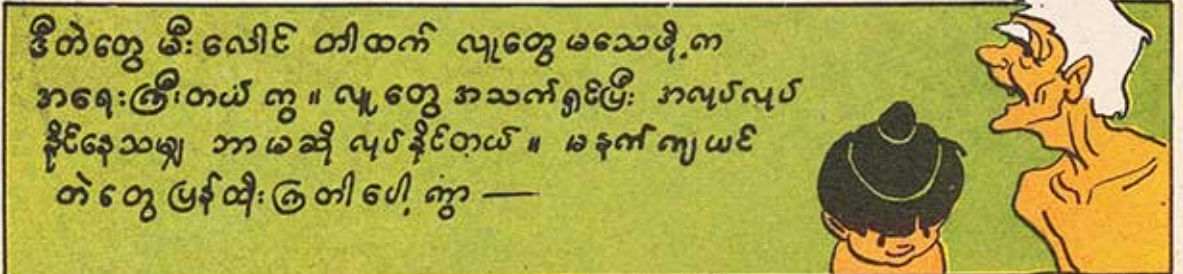 ဒီတဲတွေ မီးလောင် တါထက် လူတွေ မသေဖို့က
အရေးကြီးတယ် ကွ ။ လူတွေ အသက်ရှင်ပြီး အလုပ်လုပ်
နိုင်နေသမျှ ဘာမဆို လုပ်နိုင်တယ် ။ မနက်ကျယင်
တဲတွေ ပြန်ထိုးကြတါပေါ့ ကွာ —